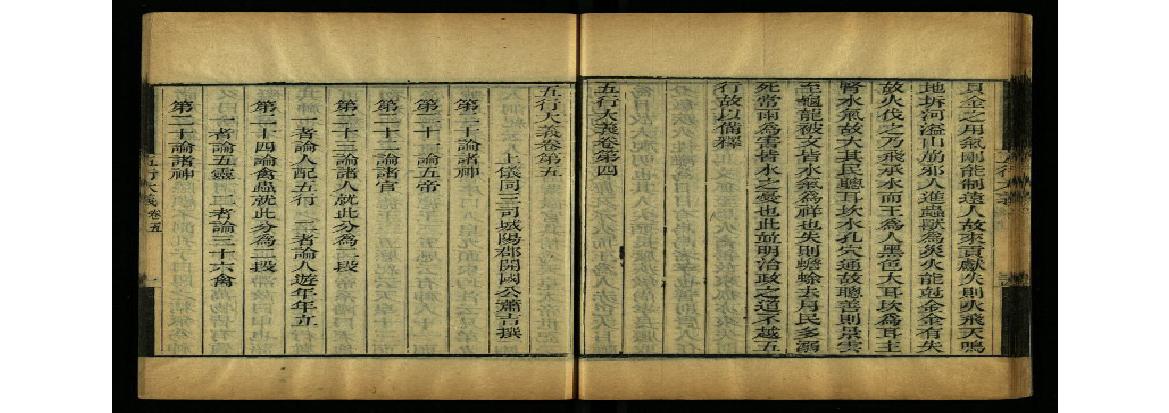 員金之用氣剛能制遠人故來貢獻失則火飛天鳴
地坼河溢山崩邪人進蟲獸為災火能剋金金有失
故火伐之乃飛承水而王為人黑色大耳坎為耳主
腎水氣故大其民聰耳坎水孔穴通故聰善則景雲
至龜龍被文皆水氣為祥也失則蟾蜍去月民多溺
死常雨為害皆水之憂也此並明治政之道不越五
行故以備釋
五行大義卷第四
五行大義卷第五
上儀同三司城陽郡開國公蕭吉撰
第二十論諸神
第二十一論五帝
第二十二論諸官
第二十三論諸人就此分為二段
一者論人配五行 二者論人遊年年立
第二十四論禽蟲就此分為二段
一者論五靈 二者論三十六禽
第二十論諸神
五行大義 卷五
一